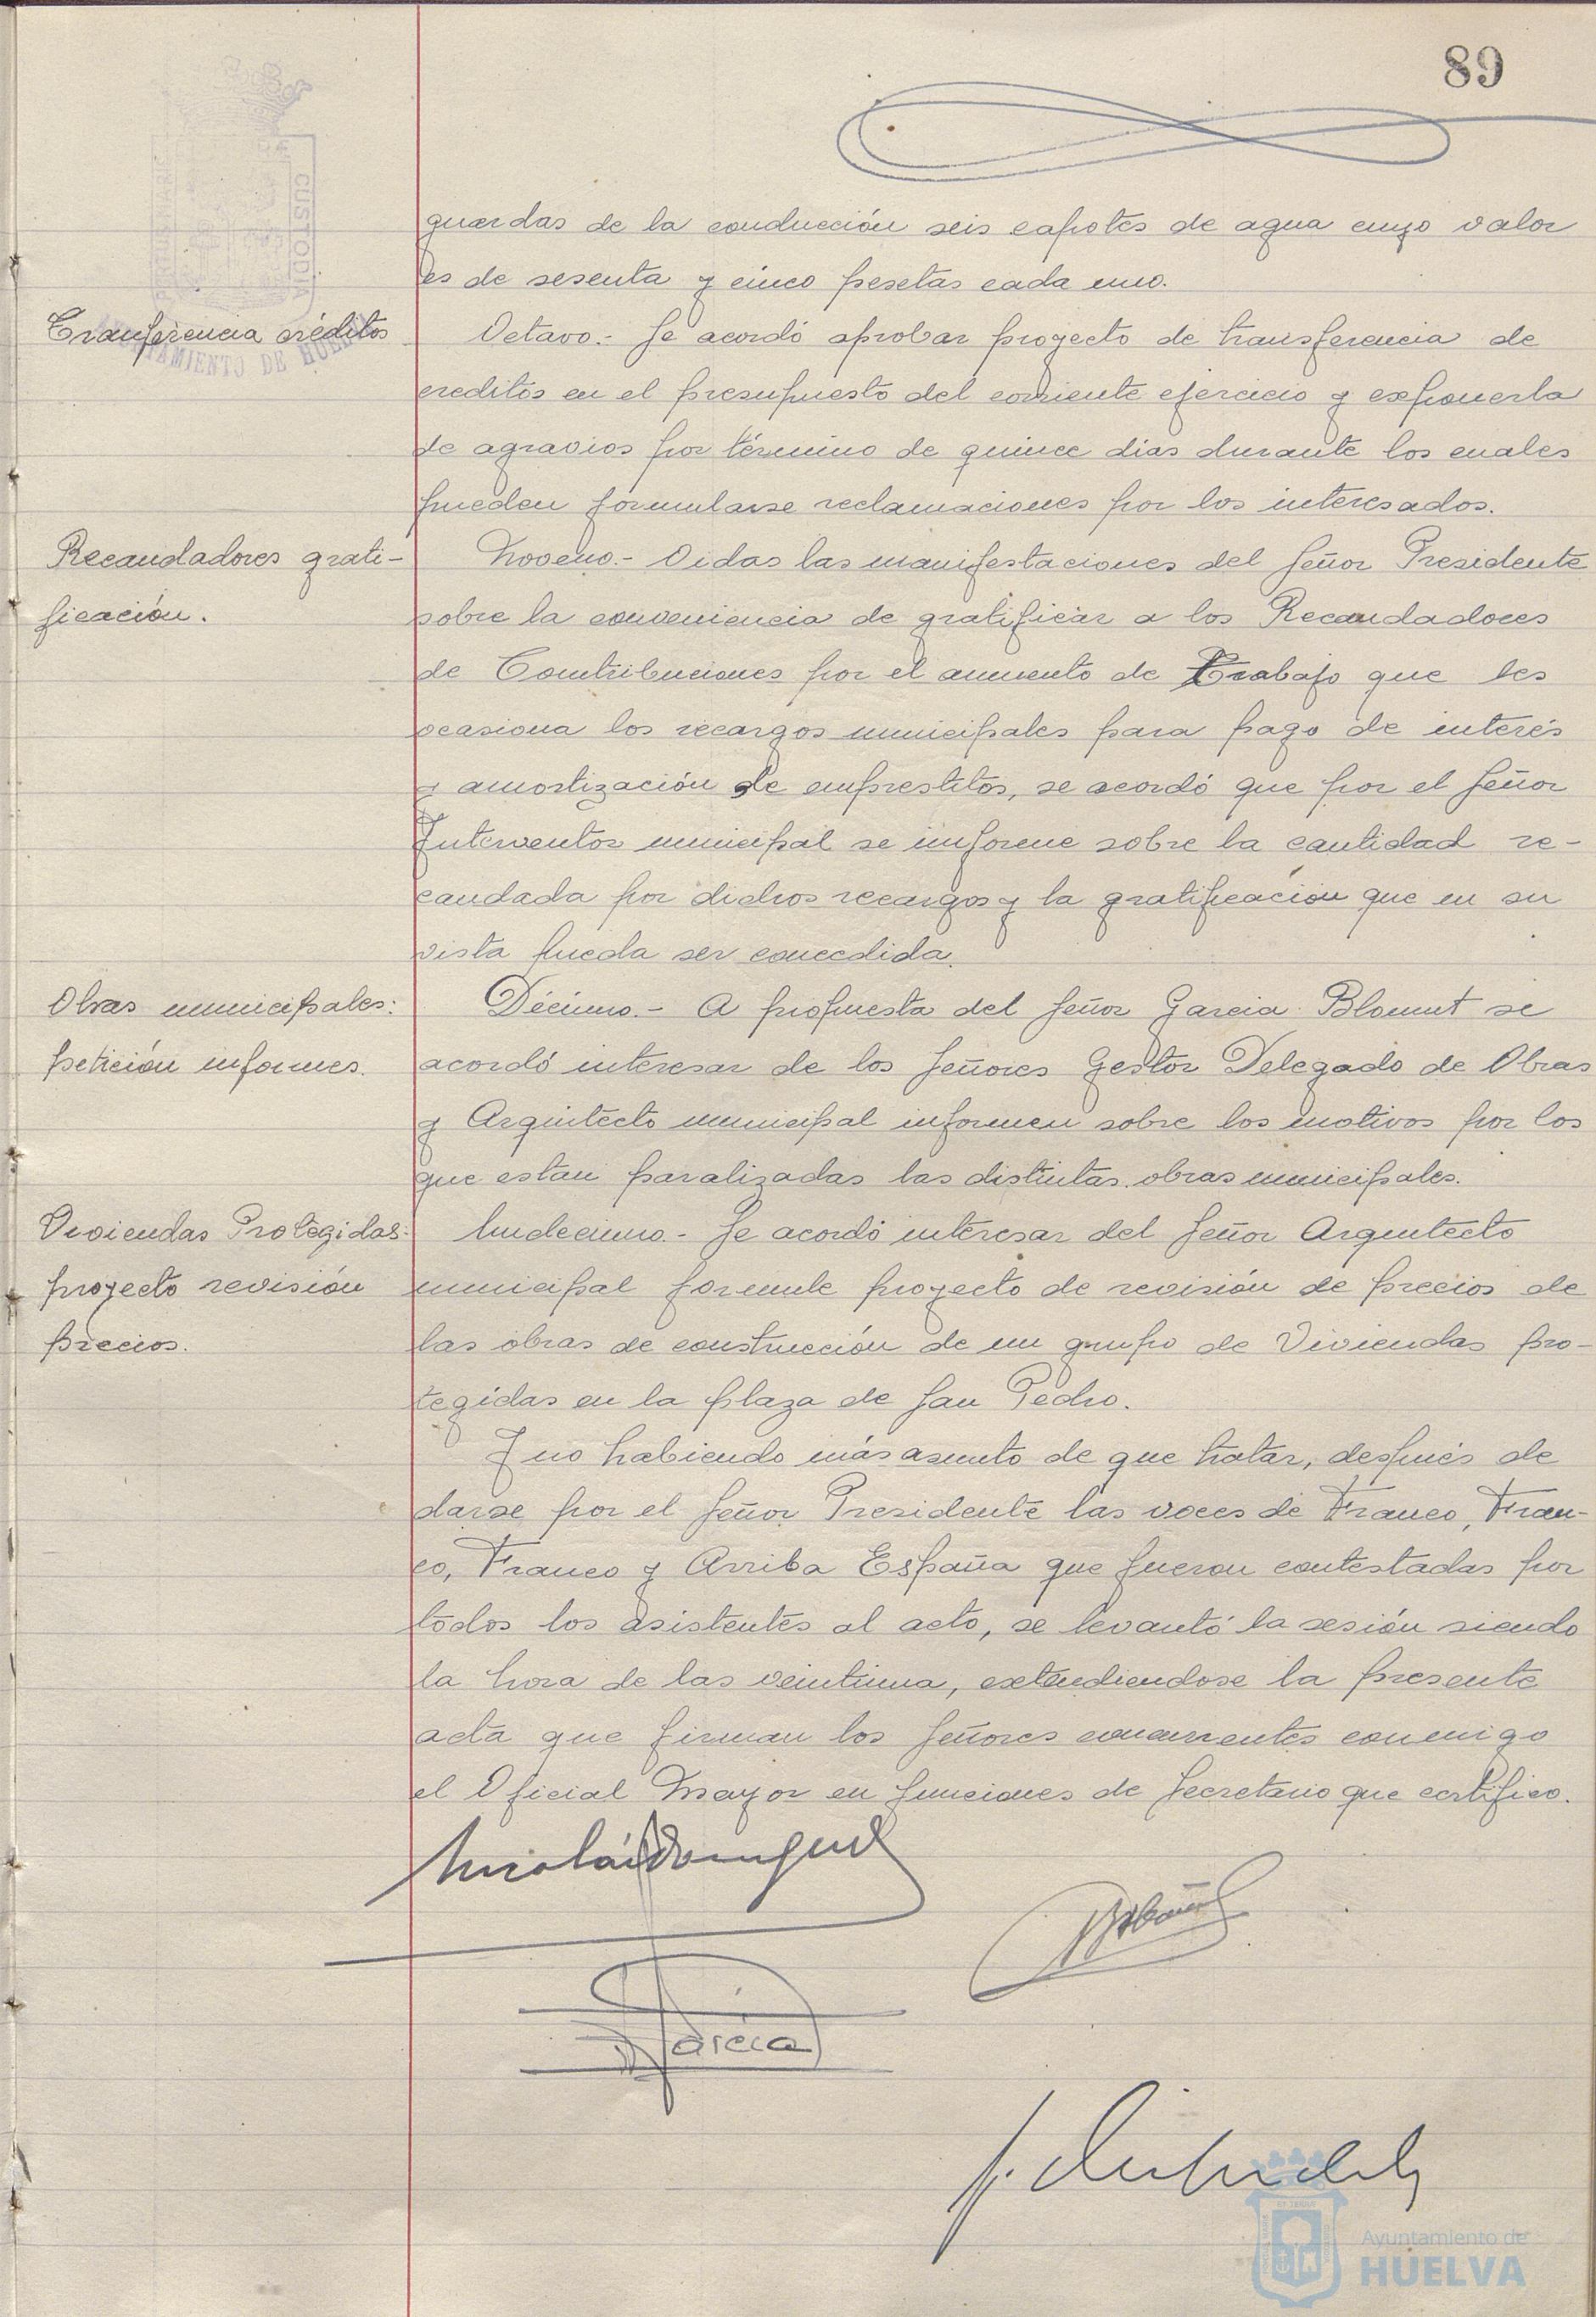 89
guardas de la conducción seis capotes de agua cuyo valor
es de sesenta y cinco pesetas cada uno.
Tranferencia créditos
Octavo.- Se acordó aprobar proyecto de transferencia de
creditos en el presupuesto del corriente ejercicio y exponerla
de agravios por término de quince dias durante los cuales
pueden formularse reclamaciones por los interesados.
Recaudadores grati-
ficación.
Noveno.- Oidas las manifestaciones del Señor Presidente
sobre la conveniencia de gratificar a los Recaudadores
de Contribuciones por el aumento de Trabajo que les
ocasiona los recargos municipales para pago de interés
y amortización de emprestitos, se acordó que por el Señor
Interventor municipal se imforme sobre la cantidad re-
caudada por dichos recargos y la gratificación que en su
vista pueda ser concedida.
Obras municipales:
petición informes.
Décimo.- A propuesta del Señor Garcia se
acordó interesar de los Señores Gestor Delegado de Obras
y Arquitecto municipal informen sobre los motivos por los
que estan paralizadas las distintas obras municipales.
Viviendas Protegidas:
proyecto revisión
precios.
Undecimo.- Se acordó interesar del Señor Arquitecto
municipal formule proyecto de revisión de precios de
las obras de construcción de un grupo de Viviendas pro-
tegidas en la plaza de San Pedro.
Y no habiendo más asunto de que tratar, después de
darse por el Señor Presidente las voces de Franco, Fran-
co, Franco y Arriba España que fueron contestadas por
todos los asistentes al acto, se levantó la sesión siendo
la hora de las veintiuna, extendiendose la presente
acta que firman los Señores concurrentes conmigo
el Oficial Mayor en funciones de Secretario que certifico.
Nicolás Dominguez
Garcia
CUSTODIA
AYUNTAMIENTO DE HUELVA
Ayuntamiento de
HUELVA